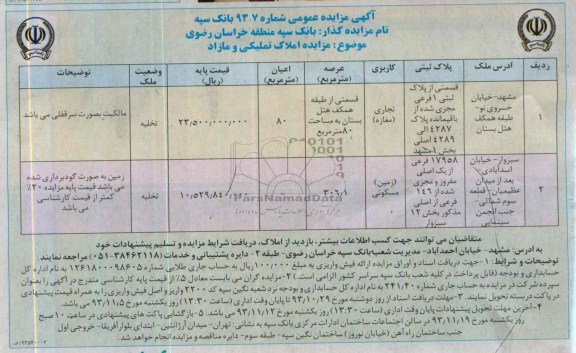 آگهی مزایده عمومی شماره ۹۳.۷ بانک سپه
نام مزایده گذار: بانک سپه منطقه خراسان رضوی
موضوع: مزایده املاک تملیکی و مازاد
ردیف آدرس ملک پلاک ثبتی کاربری عرصه (مترمربع) اعیان (مترمربع) قیمت پایه (ریال) وضعیت ملک توضیحات
۱ مشهد- خیابان خسروی نو- طبقه همکف هتل بستان قسمتی از پلاک ثبتی ۱ فرعی مجزی شده از باقیمانده پلاک ۴۲۸۷ الی ۴۲۸۹ اصلی بخش ۱ مشهد تجاری (مغازه) قسمتی از طبقه همکف هتل بستان به مساحت ۸۰ مترمربع ۸۰ ۲۳/۵۰۰/۰۰۰/۰۰۰ تخلیه مالکیت بصورت سرقفلی می باشد
۲ سبزوار- خیابان اسدآبادی- بعد از میدان عظیمیان- قطعه سوم شمالی- جنب انجمن سینمایی ۱۷۹۵۸ فرعی از یک اصلی مفروز و مجزی شده از ۱۴۶ فرعی از اصلی مذکور بخش ۱۲ سبزوار (زمین) مسکونی ۳۰۶/۱ تخلیه زمین به صورت گودبرداری شده می باشد قیمت پایه مزایده ۲۰٪ کمتر از قیمت کارشناسی می باشد
ParsNamadData
متقاضیان می توانند جهت کسب اطلاعات بیشتر، بازدید از املاک، دریافت شرایط مزایده و تسلیم پیشنهادات خود
به آدرس: مشهد- خیابان احمدآباد- مدیریت شعب بانک سپه خراسان رضوی- طبقه ۲- دایره پشتیبانی و خدمات (۳۸۴۶۲۱۱۸-۰۵۱) مراجعه نمایند
توضیحات و شرایط: ۱- جهت دریافت اسناد و اوراق مزایده ارائه فیش واریزی به مبلغ ۱۰۰/۰۰۰ ریال به حساب جاری طلایی شماره ۱۲۶۱۸۰۰۰۹۸۶۰۵ به نام اداره کل
حسابداری و بودجه (قابل پرداخت در کلیه شعب بانک سپه سراسر کشور) الزامی است. ۲- مزایده گران می بایست معادل ۵٪ از قیمت پایه کارشناسی مندرج در آگهی را بعنوان
سپرده شرکت در مزایده به حساب جاری شماره ۲۴۱/۴۰ به نام اداره کل حسابداری و بودجه نزد شعبه نگین سپه کد ۲۳۰۰ واریز و اصل فیش واریزی را به همراه فرمهای پیشنهادی
در پاکت دربسته تحویل نمایند. ۳- مهلت دریافت اسناد از روز دوشنبه مورخ ۹۳/۱۰/۲۹ تا پایان وقت اداری (ساعت ۱۳:۳۰) روز یکشنبه مورخ ۹۳/۱۱/۵ می باشد.
۴- آخرین مهلت تحویل پیشنهادات پایان وقت اداری (ساعت ۱۳:۳۰) روز یکشنبه مورخ ۹۳/۱۱/۱۲ می باشد. ۵- بازگشایی پاکت های پیشنهادی در ساعت ۱۰ صبح
روز یکشنبه مورخ ۹۳/۱۱/۱۹ در سالن اجتماعات ساختمان ادارات مرکزی بانک سپه به نشانی: تهران- میدان آرژانتین- ابتدای بلوار آفریقا- خروجی اول
جنب ساختمان راه آهن (خیابان نوروز) ساختمان نگین سپه- طبقه سوم- دایره مناقصه و مزایده انجام خواهد شد.